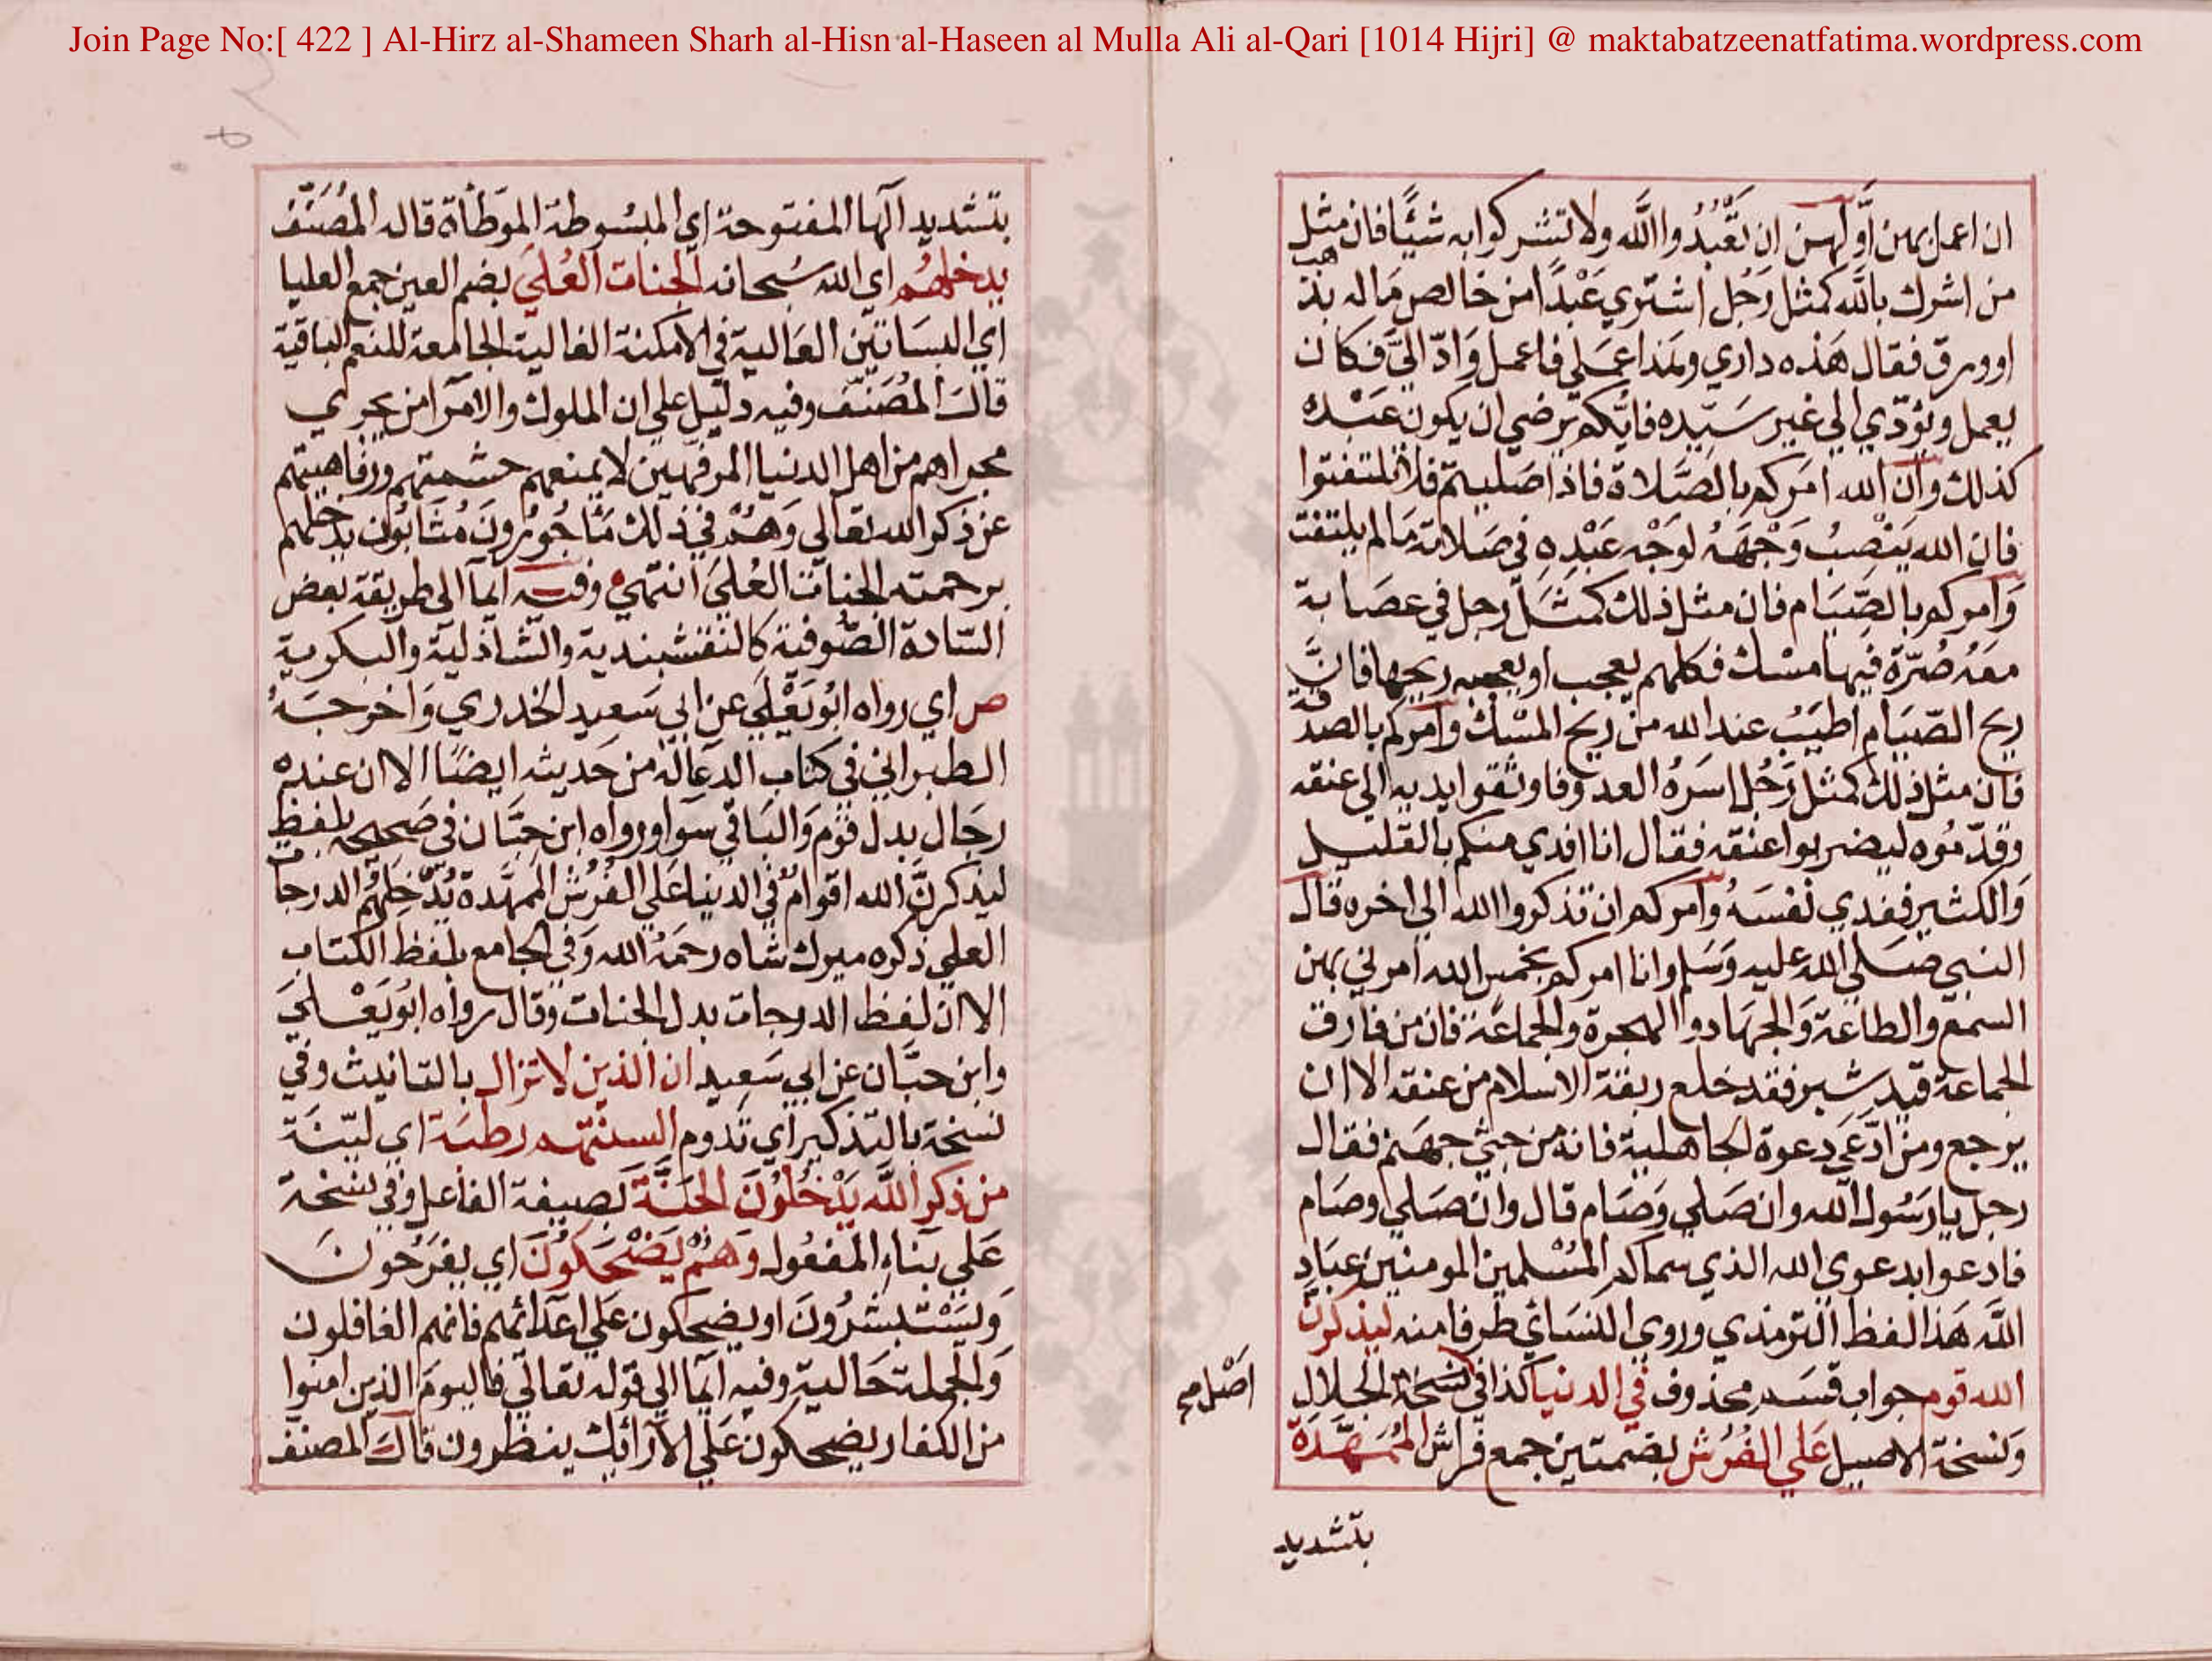 Join Page No:[ 422 ] Al-Hirz al-Shameen Sharh al-Hisn al-Haseen al Mulla Ali al-Qari [1014 Hijri] @ maktabatzeenatfatima.wordpress.com
ان اعمل بهن اَوَّلهن ان تَعْبُدُوا اللَّه ولا تشركوا به شيْئًا فان مثل
من اشرك باللَّه كمثل رَجُل اشتري عَبْدًا من خالص مَاله بذهب
او ورق فقال هَذه داري وهَذا عَمَلي فاعمل وَادّ اليَّ فكان
يعمل ويؤدّي الي غير سَيّده فايّكم يرضي ان يكون عَبْده
كذلك وان الله امَركم بالصَّلاة فاذا صَليتم فلا تلتفتوا
فان الله يَنْصِبُ وَجْهَهُ لوَجْه عَبْدِهِ في صَلاته مَا لم يلتفت
وَآمركم بالصِّيَام فان مثل ذلك كمَثَل رجل في عصَابة
معَهُ صُرّة فيها مسْك فكلهم يعجب او يعجبه ريحها فانَّ
ريح الصّيَام اطيَبُ عند الله من ريح المسْك وآمركم بالصدقة
فان مثل ذلك كمثل رَجُل اسَرهُ العدو فاوثقوا يديه الي عنقه
وقدّمُوه ليضربوا عنقه فقال انا افدي منكم بالقليل
وَالكثير ففدي نفسَهُ وآمركم ان تذكروا الله الي اخره قال
النبي صَلي الله عليه وَسَلم وانا امركم بخمس الله امرني بهن
السمع والطاعة وَالجهَاد والهجرة والجماعَة فان من فارق
الجماعة قيد شِبر فقد خلع ربقة الاسلام من عنقه الا ان
يرجع ومن ادّعَي دعوة الجاهلية فانه من جثي جهَنم فقال
رجل يا رَسُول الله وان صَلي وَصَام قال وان صَلي وصَام
فادعوا بدعوى الله الذي سماكم المُسْلمين المومنين عِبَاد
اللَّه هَذا لفظ الترمذي وروى النسَائي طرفا منه ليذكرنَّ
الله قوم جواب قسَم محذوف في الدنيا كذا في نسخة الجلال
وَنسخة الاصيل عَلي الفُرُش بضمتين جمع فراش المُمَهَّدَة
اصْل صح
بتشديد
بتشديد الها المفتوحة اي المبسُوطة الموَطأة قاله المُصَنّف
يدخلهُم اي الله سُبحانه الجنات العُلَي بضم العين جمع العليا
اي البسَاتين العَالية في الامكنة الغالية الجامعة للنعم الباقية
قالَ المُصَنّف وفيه دليل علي ان الملوك والامرا من يجري
مجراهم من اهل الدنيا المرفهين لا يمنعهم حشمتهم ورفاهيتهم
عن ذكر الله تعَالي وَهُمْ في ذلك مَأجُورُونَ مُثَابُون يدخلهم
برحمته الجنات العُلَي انتهي وفيه ايمآ الي طريقة بعض
السَّادة الصُّوفية كالنقشبندية والشاذلية والبكرية
ص اي رواه ابُو يَعْلَي عن ابي سَعيد الخدري وَاخرجَهُ
الطبراني في كتاب الدعآ له من حَديثه ايضًا الا ان عنده
رجَال بدل قوم وَالبَاقي سَوا ورواه ابن حبَّان في صَحيحه بلفظ
ليذكرنَّ الله اقوامٌ في الدنيا عَلي الفُرُش المُمَهَّدة يُدْخِلهُم الدرجات
العلي ذكره ميرك شاه رحمَهُ الله وَفي الجامع بلفظ الكتاب
الا ان لفظ الدرجات بدل الجنات وقال رواه ابُو يَعْلَي
وابن حبَّان عن ابي سَعيد ان الذين لا تزال بالتانيث وفي
نسخة بالتذكير اي تدوم السنتهم رطبَة اي ليّنَة
من ذكر اللَّه يَدْخُلُونَ الجَنَّة بصيغة الفاعل وفي نسْخة
عَلي بناءِ المفعُول وهُمْ يَضْحَكُونَ اي يفرَحُونَ
وَيَسْتبشرُونَ او يضحكون عَلي اعدائهم فانهم الغافلون
وَالجملة حَالية وفيه ايمآ الي قوله تعَالي فاليومَ الذين امنوا
من الكفار يضحكون عَلي الارائك ينظرون قالَ المصنف